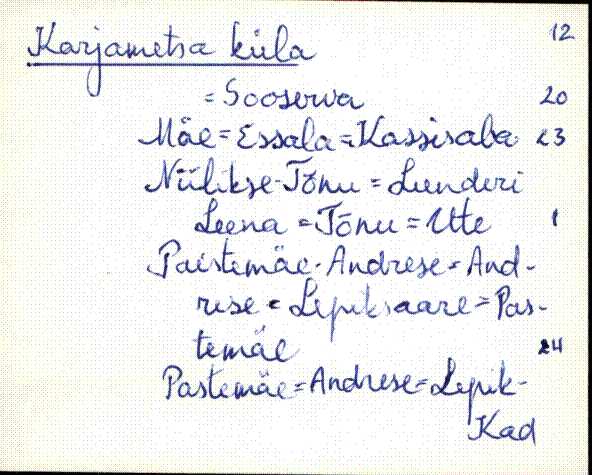 12
Karjametsa küla
= Sooserva 20
Mäe = Essala = Kassisaba 23
Niilikse-Tõnu = Leenderi
Leena = Tõnu = Ute 1
Paistemäe-Andrese = And-
rese = Lepiksaare = Pas-
temäe 24
Pastemäe = Andrese = Lepik-
Kad